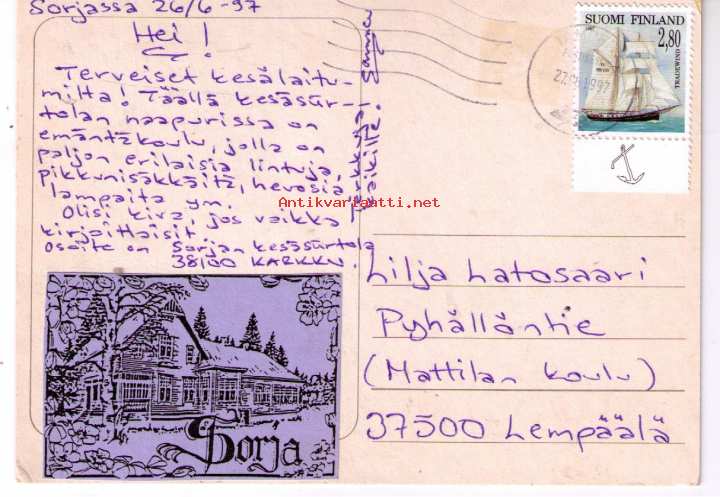 Sorjassa 26/6 -97
Hei!
Terveiset kesälaitu-
milta! Täällä kesäsiir-
tolan naapurissa on
emäntäkoulu, jolla on
paljon erilaisia lintuja,
pikkunisäkkäitä, hevosia
lampaita ym.
Olisi kiva, jos vaikka
kirjoittaisit
osoite on Sorjan kesäsiirtola
38100 KARKKU.
kaikille!
SUOMI FINLAND
1997
2,80
TRADEWIND
Antikvariaatti.net
Lilja Latosaari
Pyhällöntie
(Mattilan koulu)
37500 Lempäälä
Sorja